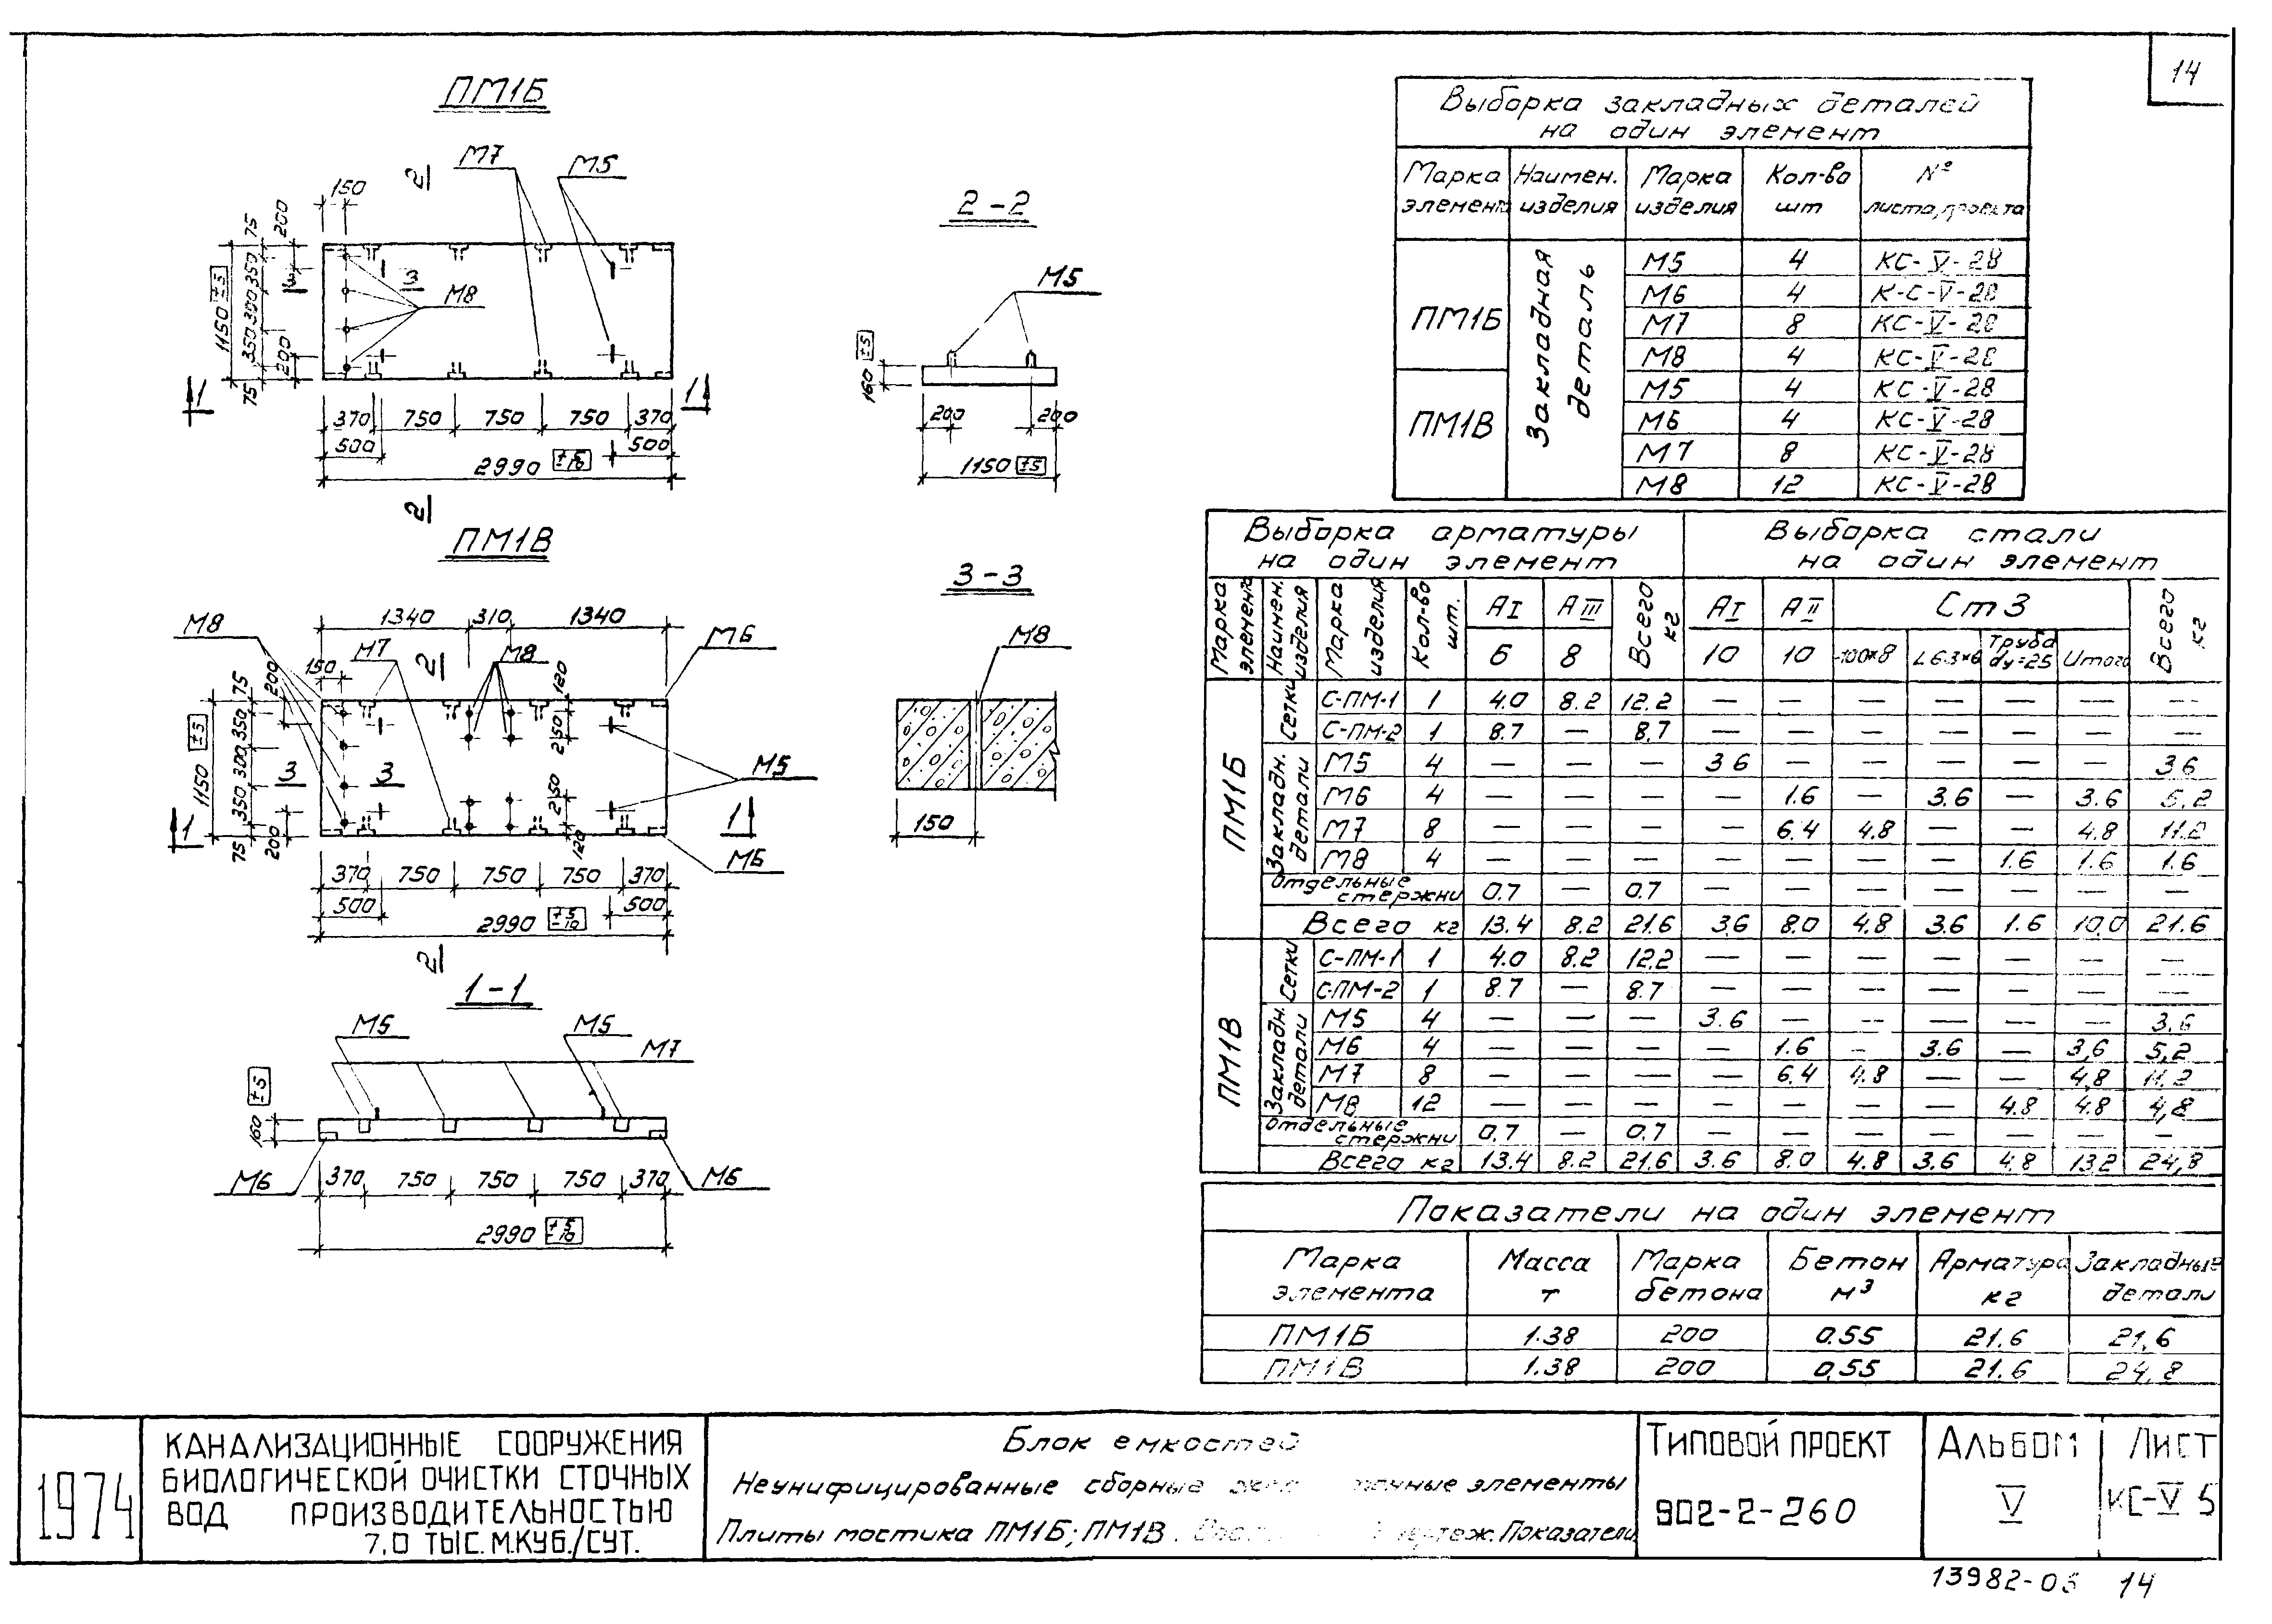 14
ПМ1Б
М7
М5
2
150
75
200
350
300
350
75
200
1150 ±5
3
3
М8
1
1
370 750 750 750 370
500
500
2990 +5 -10
2
2-2
М5
160 ±5
200
200
1150 ±5
ПМ1В
1340 310 1340
М8
М7
2
М8
М6
150
200
75
350
300
350
75
200
1150 ±5
120
250
250
120
3
3
М5
1
1
М6
370 750 750 750 370
500
500
2990 +5 -10
2
3-3
М8
150
1-1
М5
М5
М7
160 ±5
М6
370 750 750 750 370
М6
2990 +5 -10
Выборка закладных деталей
на один элемент
Марка элемент Наимен. изделия Марка изделия Кол-во шт № листа, проекта
ПМ1Б Закладная деталь М5 4 КС-V-28
М6 4 К-С-V-28
М7 8 КС-V-28
М8 4 КС-V-28
ПМ1В М5 4 КС-V-28
М6 4 КС-V-28
М7 8 КС-V-28
М8 12 КС-V-28
Выборка арматуры
на один элемент
Выборка стали
на один элемент
Марка элемент Наимен. изделия Марка изделия Кол-во шт. АI АIII Всего кг АI АII Ст3 Всего кг
6 8 10 10 -100×8 L63×6 Труба dу=25 Итого
ПМ1Б Сетки С-ПМ-1 1 4.0 8.2 12.2 — — — — — — —
С-ПМ-2 1 8.7 — 8.7 — — — — — — —
Закладн. детали М5 4 — — — 3.6 — — — — — 3.6
М6 4 — — — — 1.6 — 3.6 — 3.6 5,2
М7 8 — — — — 6.4 4.8 — — 4.8 11.2
М8 4 — — — — — — — 1.6 1.6 1.6
Отдельные стержни 0.7 — 0.7 — — — — — — —
Всего кг 13.4 8.2 21.6 3,6 8.0 4.8 3.6 1.6 10,0 21.6
ПМ1В Сетки С-ПМ-1 1 4.0 8.2 12.2 — — — — — — —
С-ПМ-2 1 8.7 — 8.7 — — — — — — —
Закладн. детали М5 4 — — — 3.6 — — — — — 3,6
М6 4 — — — — 1.6 — 3.6 — 3,6 5,2
М7 8 — — — — 6.4 4.8 — — 4,8 11.2
М8 12 — — — — — — — 4.8 4.8 4,8
Отдельные стержни 0.7 — 0.7 — — — — — — —
Всего кг 13.4 8.2 21.6 3.6 8.0 4.8 3.6 4,8 13.2 24,8
Показатели на один элемент
Марка элемента Масса т Марка бетона Бетон м³ Арматура кг Закладные детали
ПМ1Б 1.38 200 0.55 21.6 21,6
ПМ1В 1.38 200 0,55 21.6 24,8
1974
КАНАЛИЗАЦИОННЫЕ СООРУЖЕНИЯ
БИОЛОГИЧЕСКОЙ ОЧИСТКИ СТОЧНЫХ
ВОД ПРОИЗВОДИТЕЛЬНОСТЬЮ
7,0 ТЫС.М.КУБ./СУТ.
Блок емкостей
Неунифицированные сборные элементы
Плиты мостика ПМ1Б; ПМ1В. Показатели
ТИПОВОЙ ПРОЕКТ
902-2-260
АЛЬБОМ
V
ЛИСТ
КС-V 5
13982-05 14